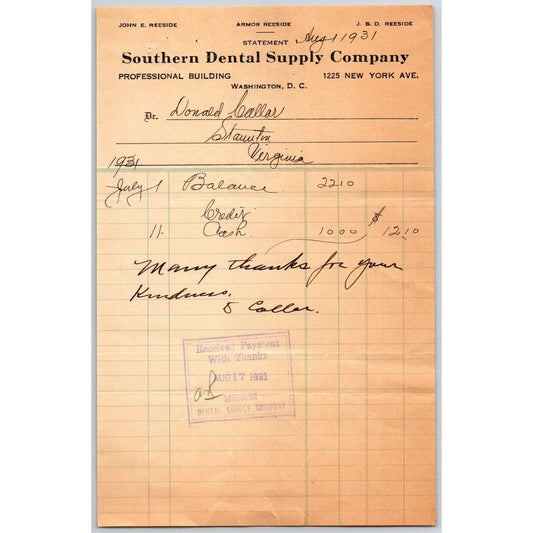 JOHN E. REESIDE ARMOR REESIDE J. B. D. REESIDE
STATEMENT Aug 1 1931
Southern Dental Supply Company
PROFESSIONAL BUILDING 1225 NEW YORK AVE.
WASHINGTON, D. C.
Dr. Donald Collar
Staunton
Virginia
1931
July 1 Balance 22 10
Credit
11 Cash 10 00 $ 12 10
Many thanks for your
Kindness.
D Collar.
Received Payment
With Thanks
AUG 17 1931
SOUTHERN
DENTAL SUPPLY COMPANY